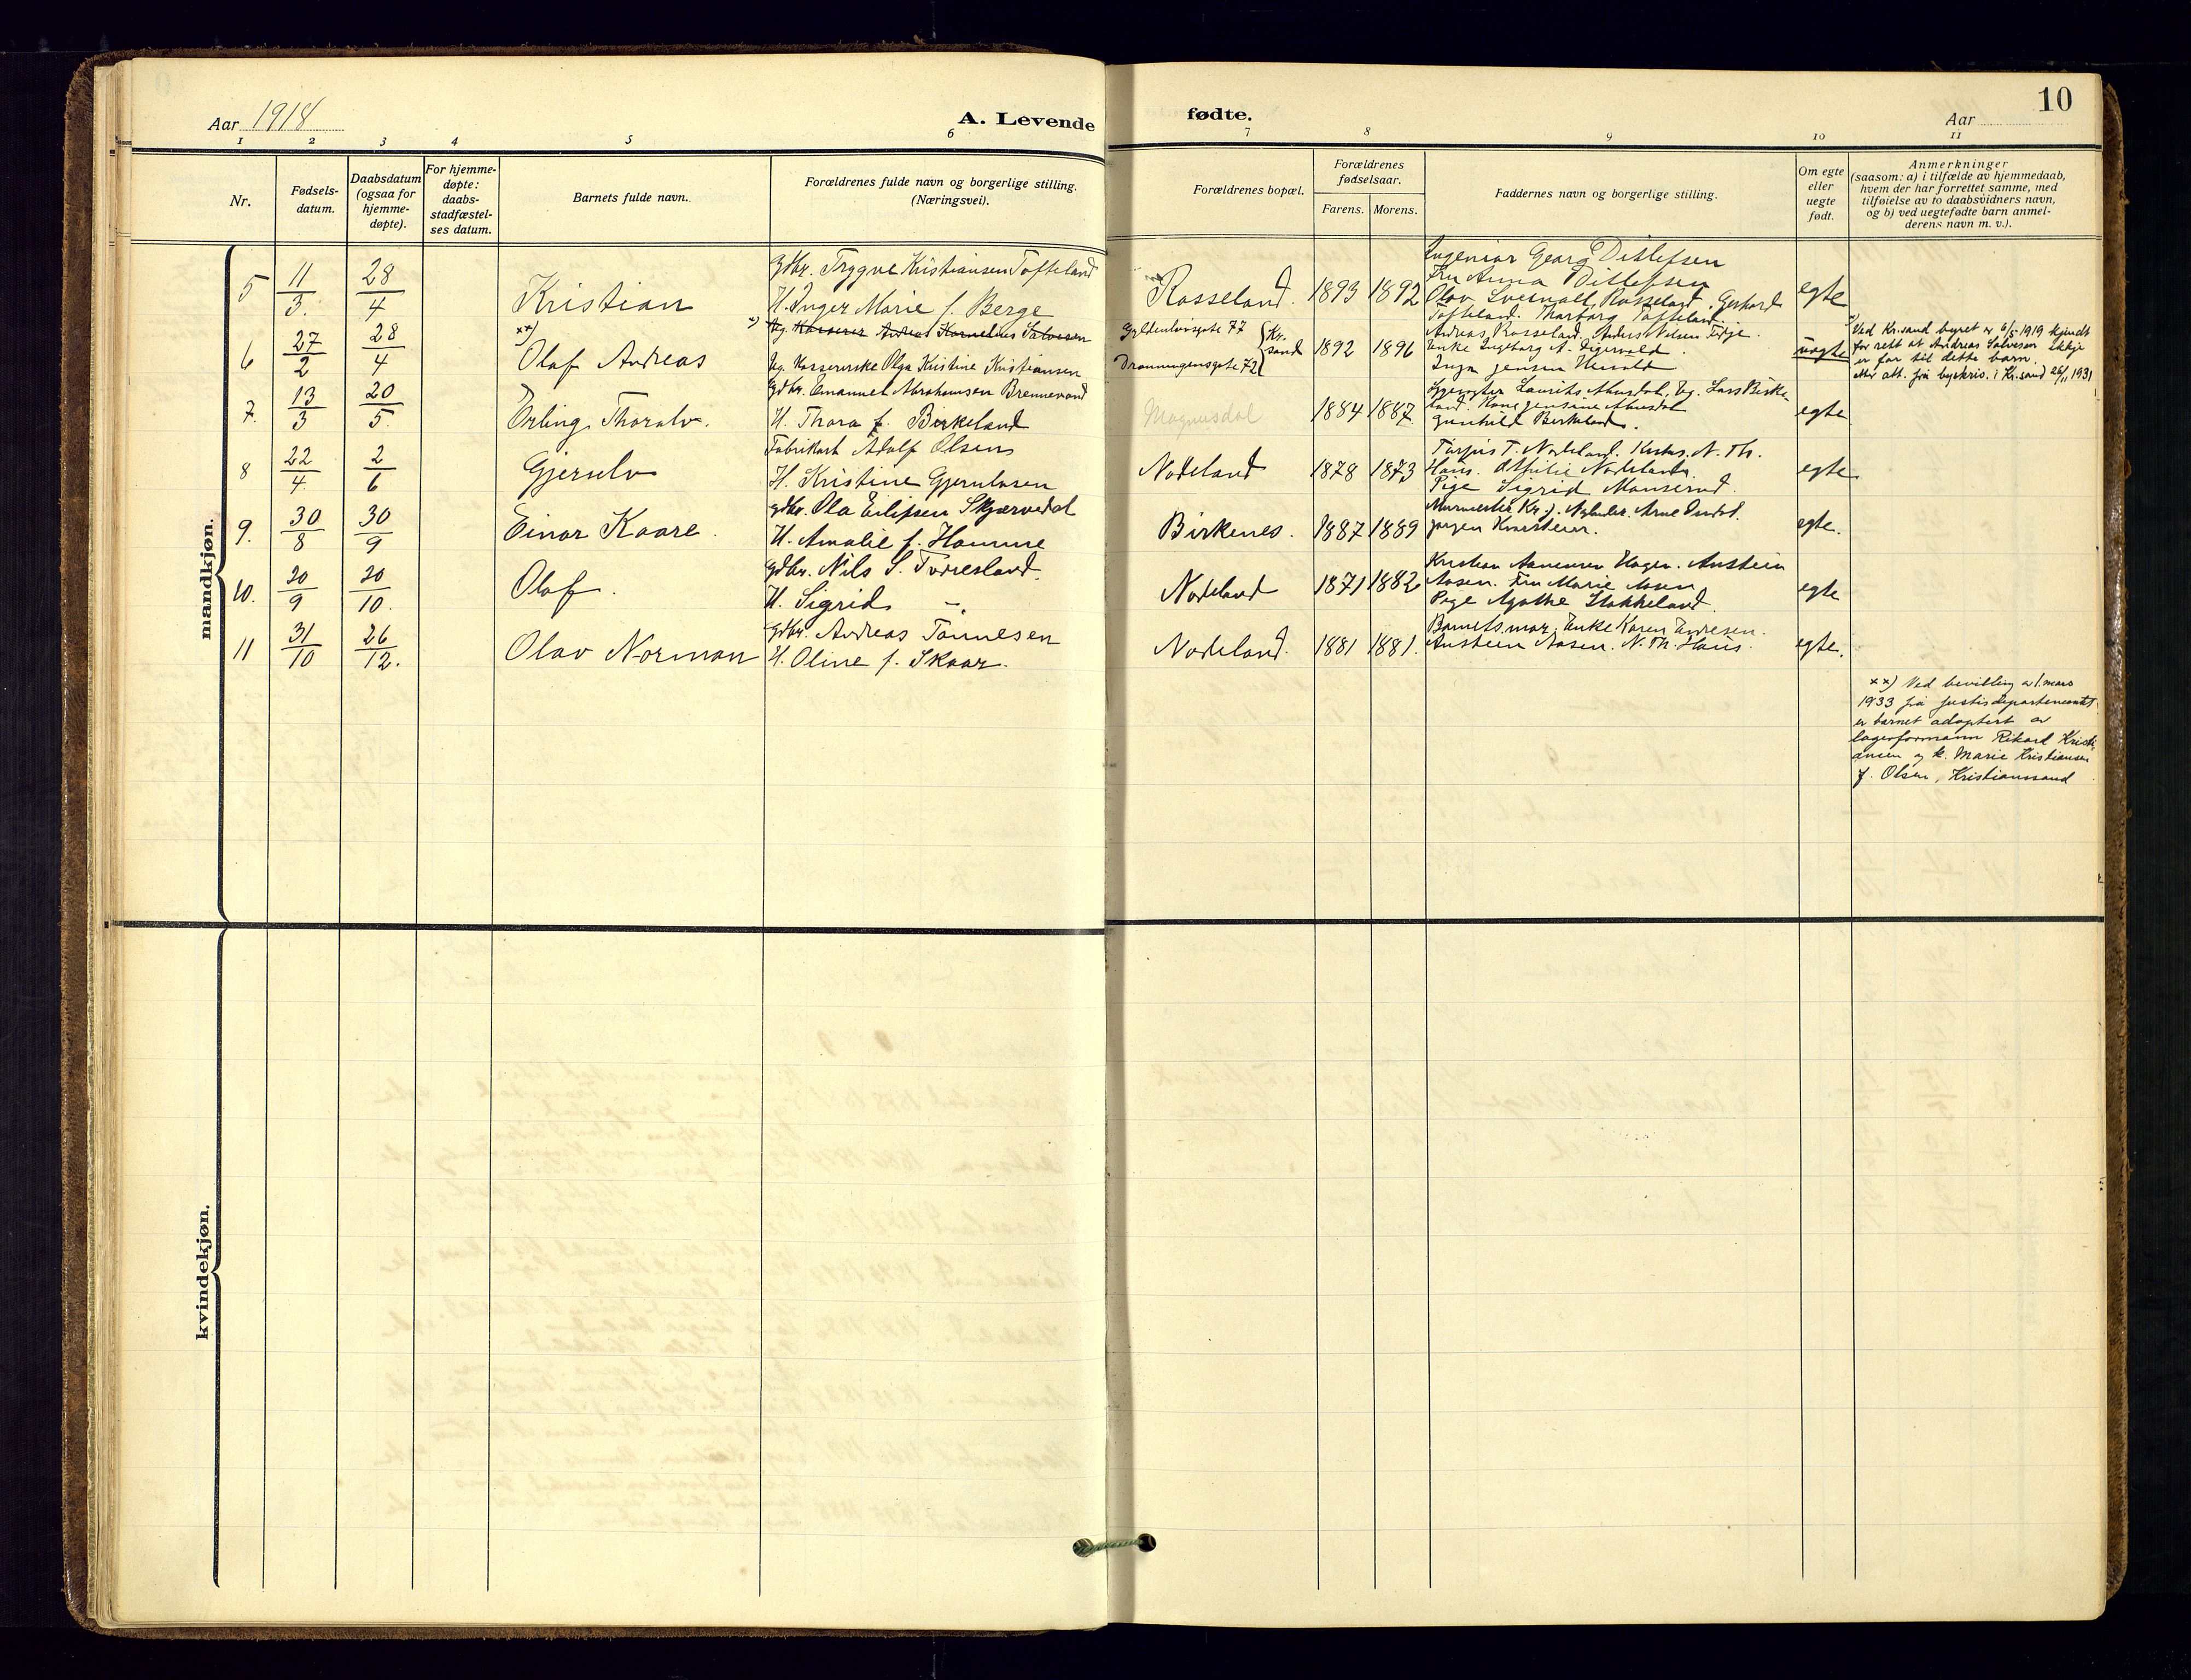 Aar 1918
A. Levende
fødte.
Aar
10
1 2 3 4 5 6 7 8 9 10 11
Nr.
Fødsels-
datum.
Daabsdatum
(ogsaa for
hjemme-
døpte).
For hjemme-
døpte:
daabs-
stadfæstel-
ses datum.
Barnets fulde navn.
Forældrenes fulde navn og borgerlige stilling.
(Næringsvei).
Forældrenes bopæl.
Forældrenes
fødselsaar.
Farens. Morens.
Faddernes navn og borgerlige stilling.
Om egte
eller
uegte
født.
Anmerkninger
(saasom: a) i tilfælde av hjemmedaab,
hvem der har forrettet samme, med
tilføielse av to daabsvidners navn,
og b) ved uegtefødte barn anmel-
derens navn m. v.).
mandkjøn.
5 11/3. 28/4 Kristian
Gdbr. Trygve Kristiansen Tofteland
H. Inger Marie f. Berge
Rosseland. 1893 1892
Ingeniør Georg Ditlefsen
Fru Anna Ditlefsen
Olav Rosseland, Gerhard
Tofteland. Tharborg Tofteland.
egte
6 27/2 28/4 xx) Olaf Andreas
x) Ug. Kasserer Andreas Kornelius Salvesen
Ug. Kassererske Olga Kristine Kristiansen
Gyldenløvsgate 77
Dronningensgate 72
Kr.
sand
1892 1896
Andreas Rosseland. Anders Nilsen
Enke Ingeborg A.
Inga Jensen
uegte
x) Ved Kr.sand byret er 6/5 1919 kjendt
for rett at Andreas Salvesen ikkje
er far til dette barn.
att. frå byskriv. i Kr.sand 26/11 1931
7. 13/3 20/5 Erling Thoralv.
Gdbr. Emanuel Abrahamsen Brennevand
H. Thora f. Birkeland
Magnusdal 1884 1887.
Laurits Ug. Lars Birke-
land. Kone Jensine
Gunhild Birkeland.
egte
8 22/4. 2/6 Gjerulv
Fabrikarb Adolf Olsen
H. Kristine Gjerulvsen
Nodeland 1878 1873
Torjus T. Nodeland. N. Th.
Haus. Othilie Nodeland.
Pige Sigrid
egte
9. 30/8 30/9 Einar Kaare.
gdbr. Ola Eilifsen Skjervedal
H. Amalie f. Homme
Birkenes. 1887 1889
Murmester Kr. J. Arne
Jørgen
egte.
10. 20/9 20/10. Olaf.
gdbr. Nils S. Torresland.
H. Sigrid –.
Nodeland 1871 1882
Kristian Hagen. Anstein
Aasen. Fru Marie Aasen
Pige Agathe Stokkeland.
egte
11 31/10 26/12. Olav Norman
gdbr. Andreas Tønnesen
H. Oline f. Skaar.
Nodeland. 1881 1881.
Barnets mor. Enke Karen Endresen.
Anstein Aasen. N. Th. Haus.
egte.
xx) Ved bevilling av 1. mars
1933 fra justisdepartementet
er barnet adoptert av
lagerformann Rikard Kristi-
ansen og h. Marie Kristiansen
f. Olsen, Kristianssand
kvindekjøn.